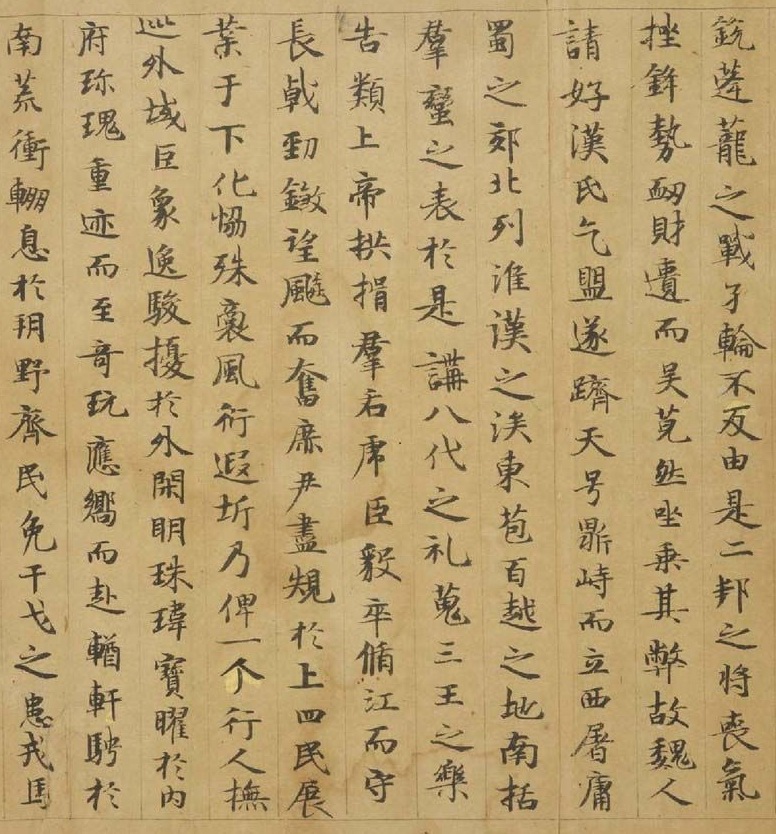 銳蓬蘢之戰孑輪不反由是二邦之將喪氣
挫鋒勢衂財匱而吴莞然坐乗其弊故魏人
請好漢氏乞盟遂躋天号鼎峙而立西屠庸
蜀之郊北列淮漢之涘東苞百越之地南括
羣蠻之表於是講八代之礼蒐三王之樂
告類上帝拱揖羣后虎臣毅卒循江而守
長戟勁鎩望飈而奮庶尹盡規於上四民展
業于下化恊殊裔風衍遐圻乃俾一个行人撫
巡外域臣象逸駿擾於外閑明珠瑋寶曜於内
府珎瑰重迹而至奇玩應響而赴輶軒騁於
南荒衝輣息於朔野齊民免干戈之患戎馬